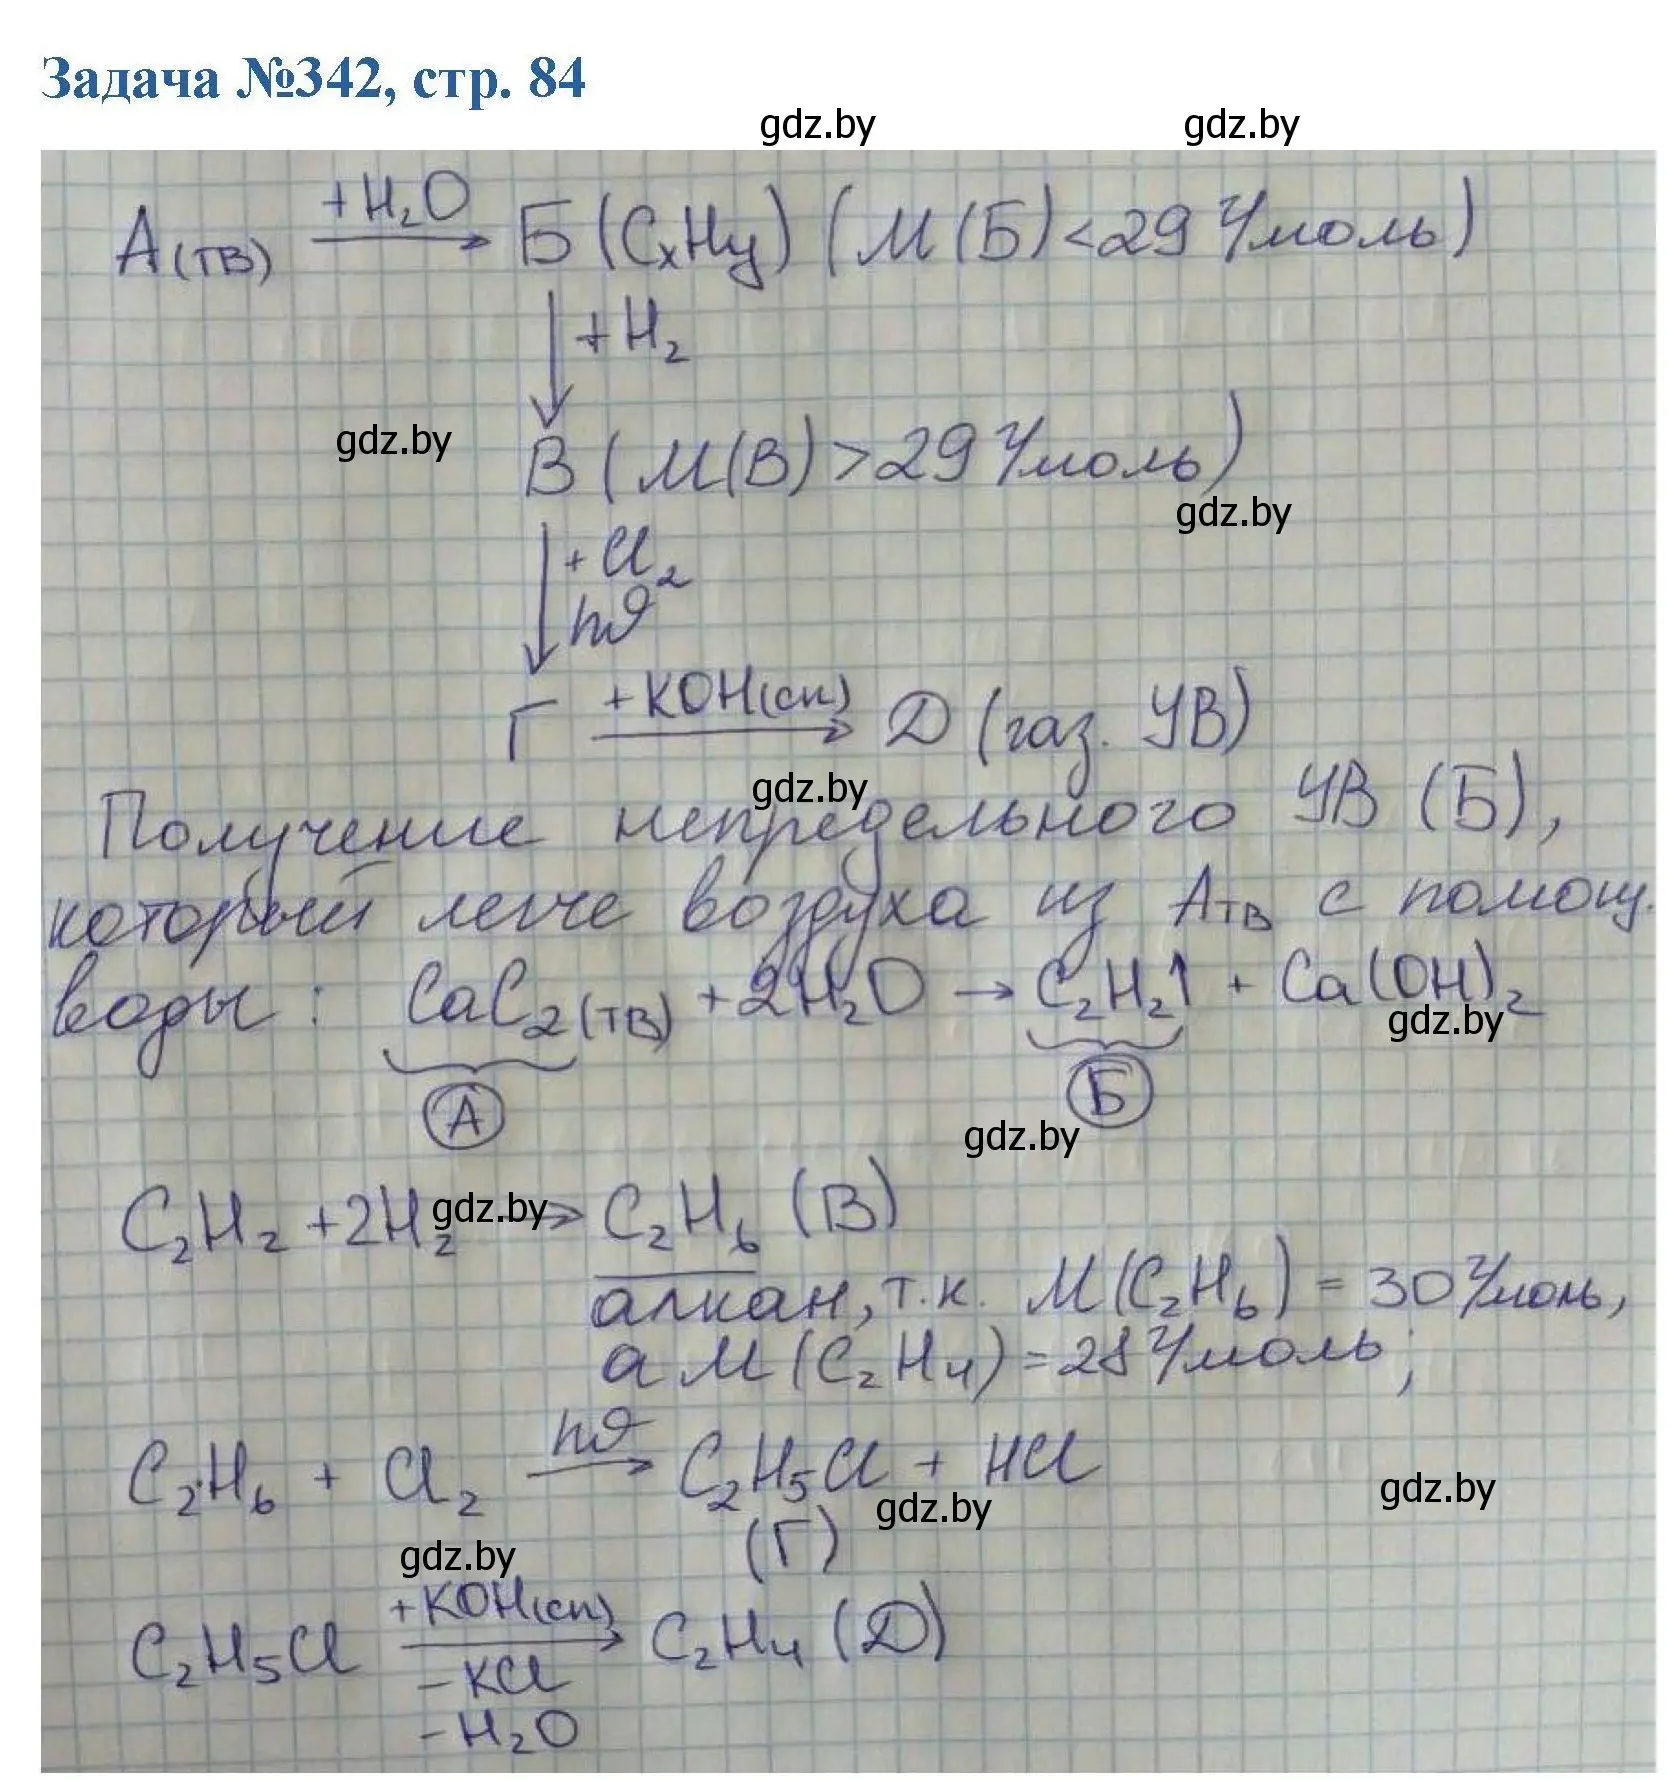 Задача №342, стр. 84
gdz.by gdz.by
A(тв) +H₂O → Б (CxHy) (M(Б) < 29 г/моль)
↓ +H₂
gdz.by
В (M(В) > 29 г/моль)
gdz.by
↓ +Cl₂
hϑ
Г +KOH(сп) → Д (газ. УВ)
gdz.by
Получение непредельного УВ (Б),
который легче воздуха из Aтв с помощ.
воды: CaC₂(тв) + 2H₂O → C₂H₂↑ + Ca(OH)₂
gdz.by
А Б
gdz.by
C₂H₂ + 2H₂ → C₂H₆ (В)
gdz.by
алкан, т.к. M(C₂H₆) = 30 г/моль,
а M(C₂H₄) = 28 г/моль;
C₂H₆ + Cl₂ hϑ → C₂H₅Cl + HCl
gdz.by gdz.by
(Г)
gdz.by
C₂H₅Cl +KOH(сп) → C₂H₄ (Д)
-KCl
-H₂O